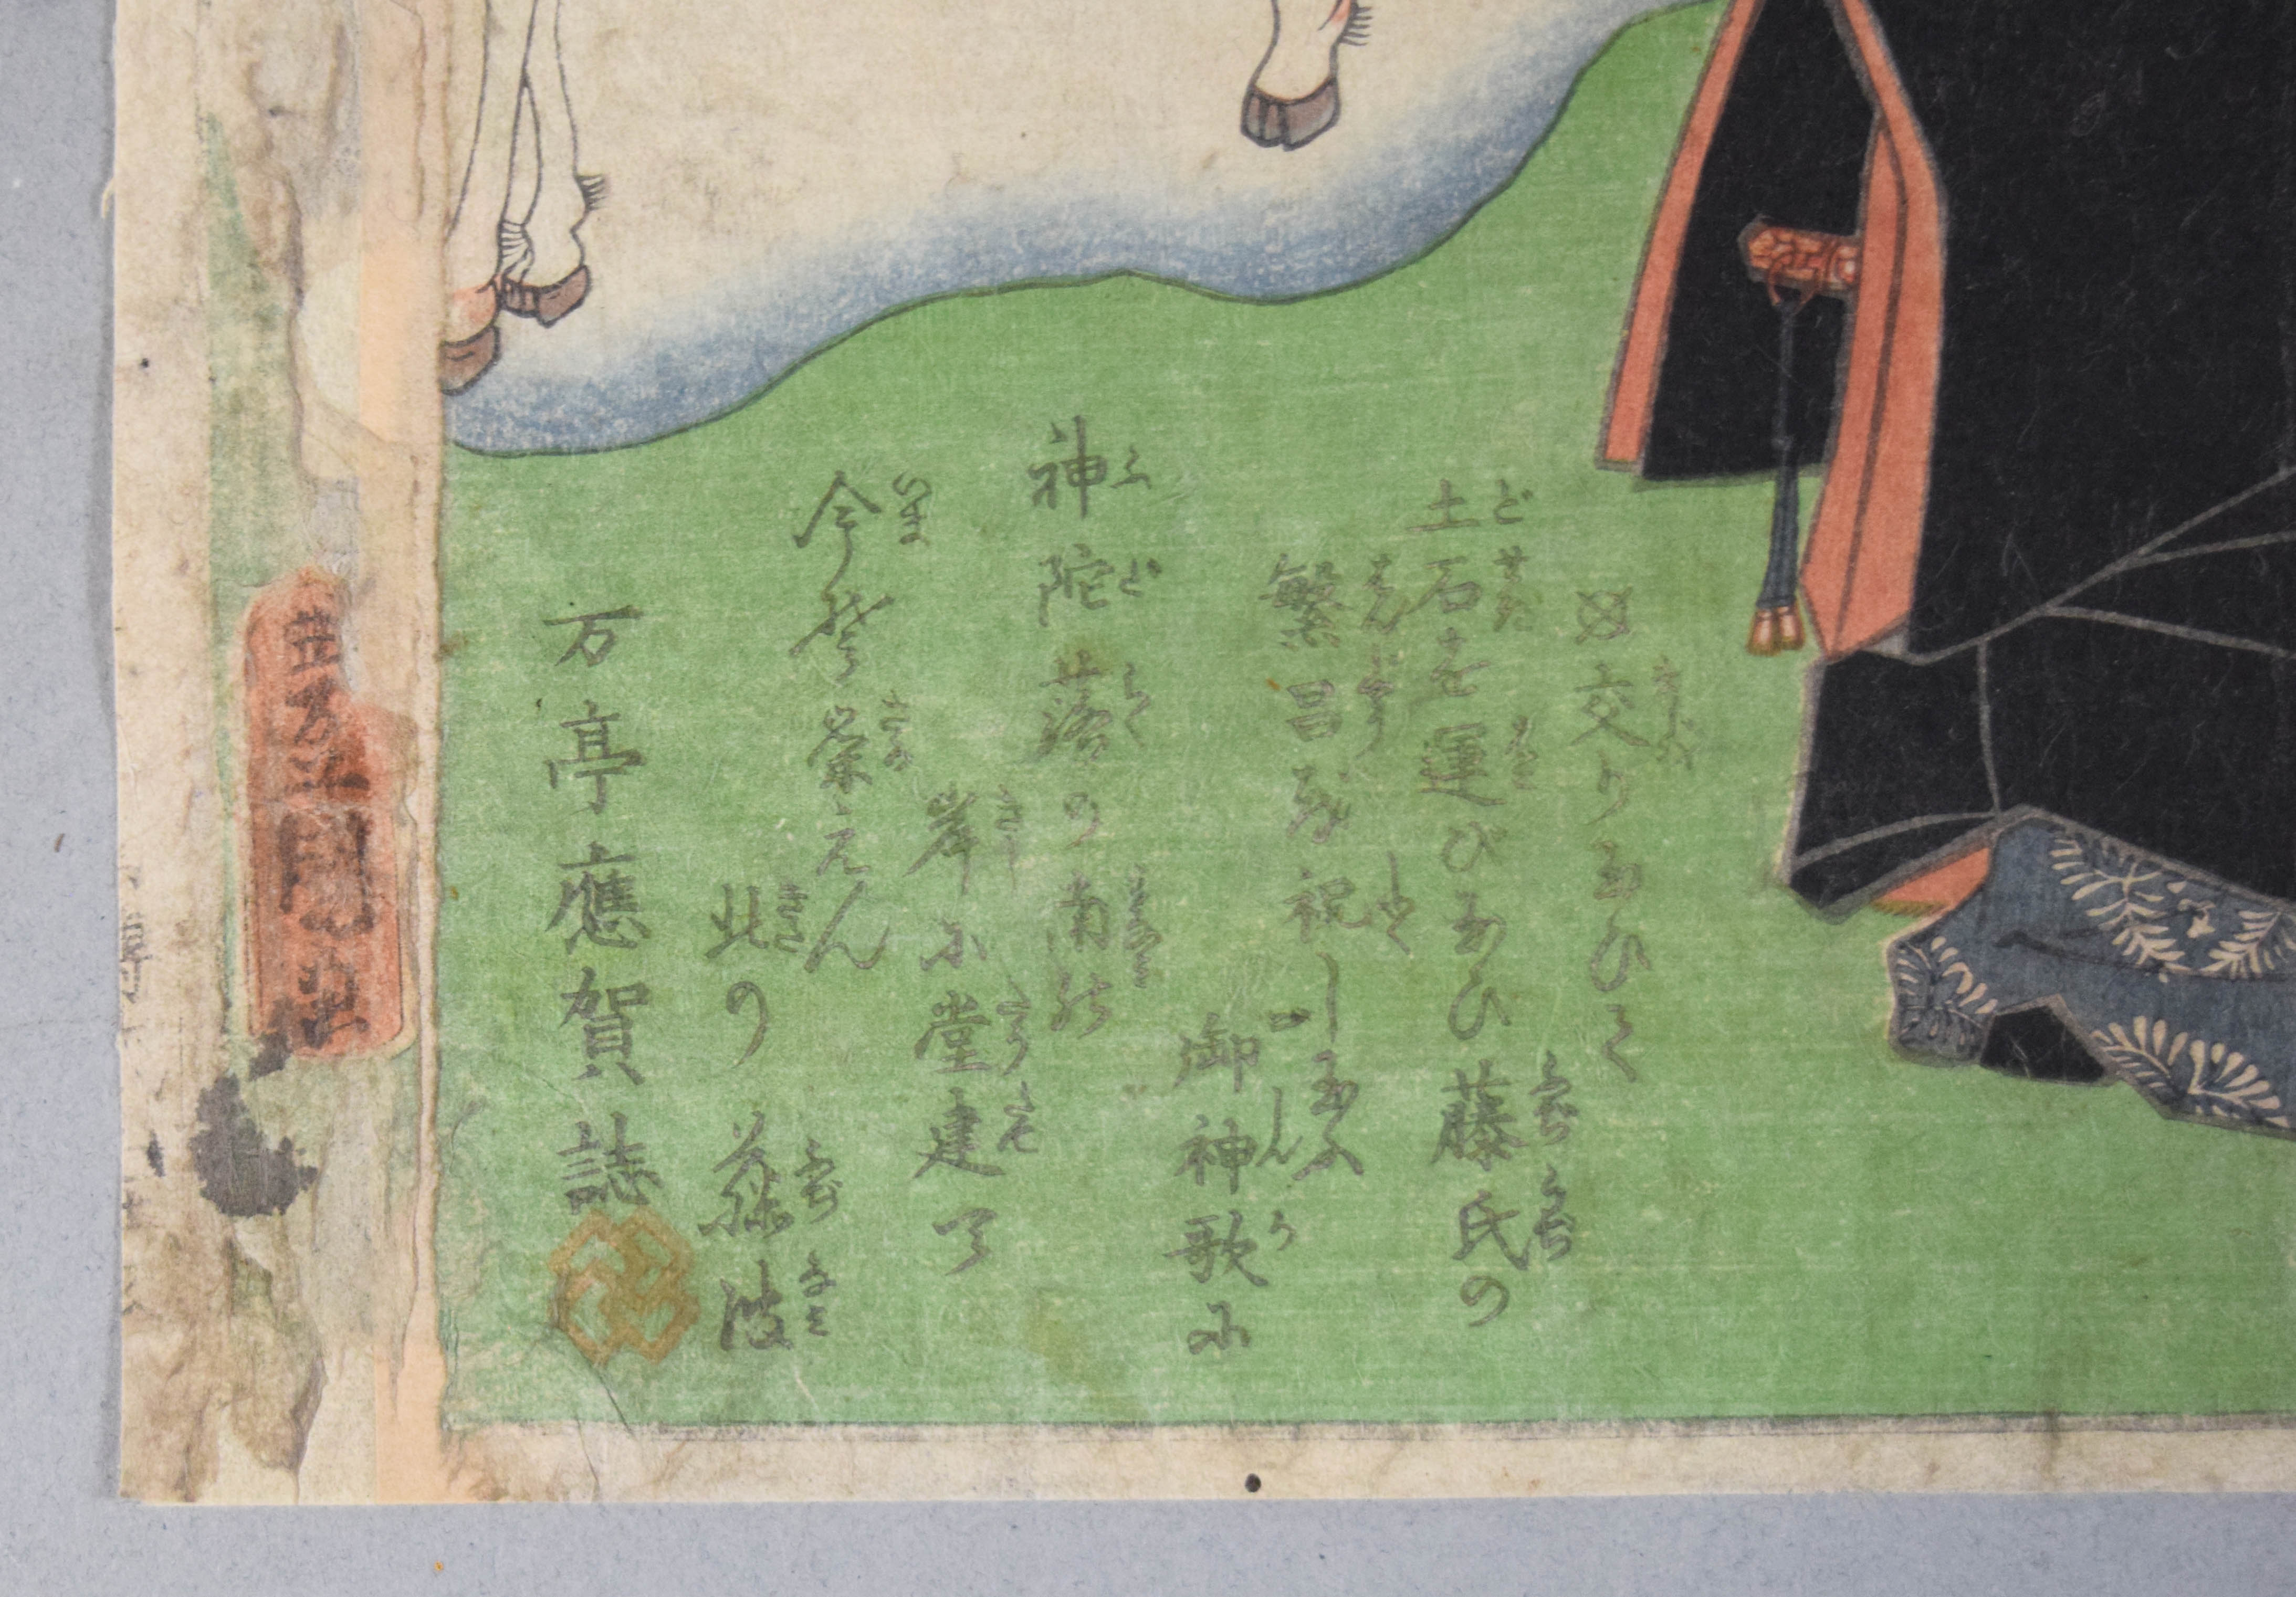 に交りたまひて
土石を運びたまひ藤氏の
繁昌を祝したまふ
御神歌に
神陀落の南の
岸に堂建て
今ぞ栄えん
北の藤波
万亭應賀誌